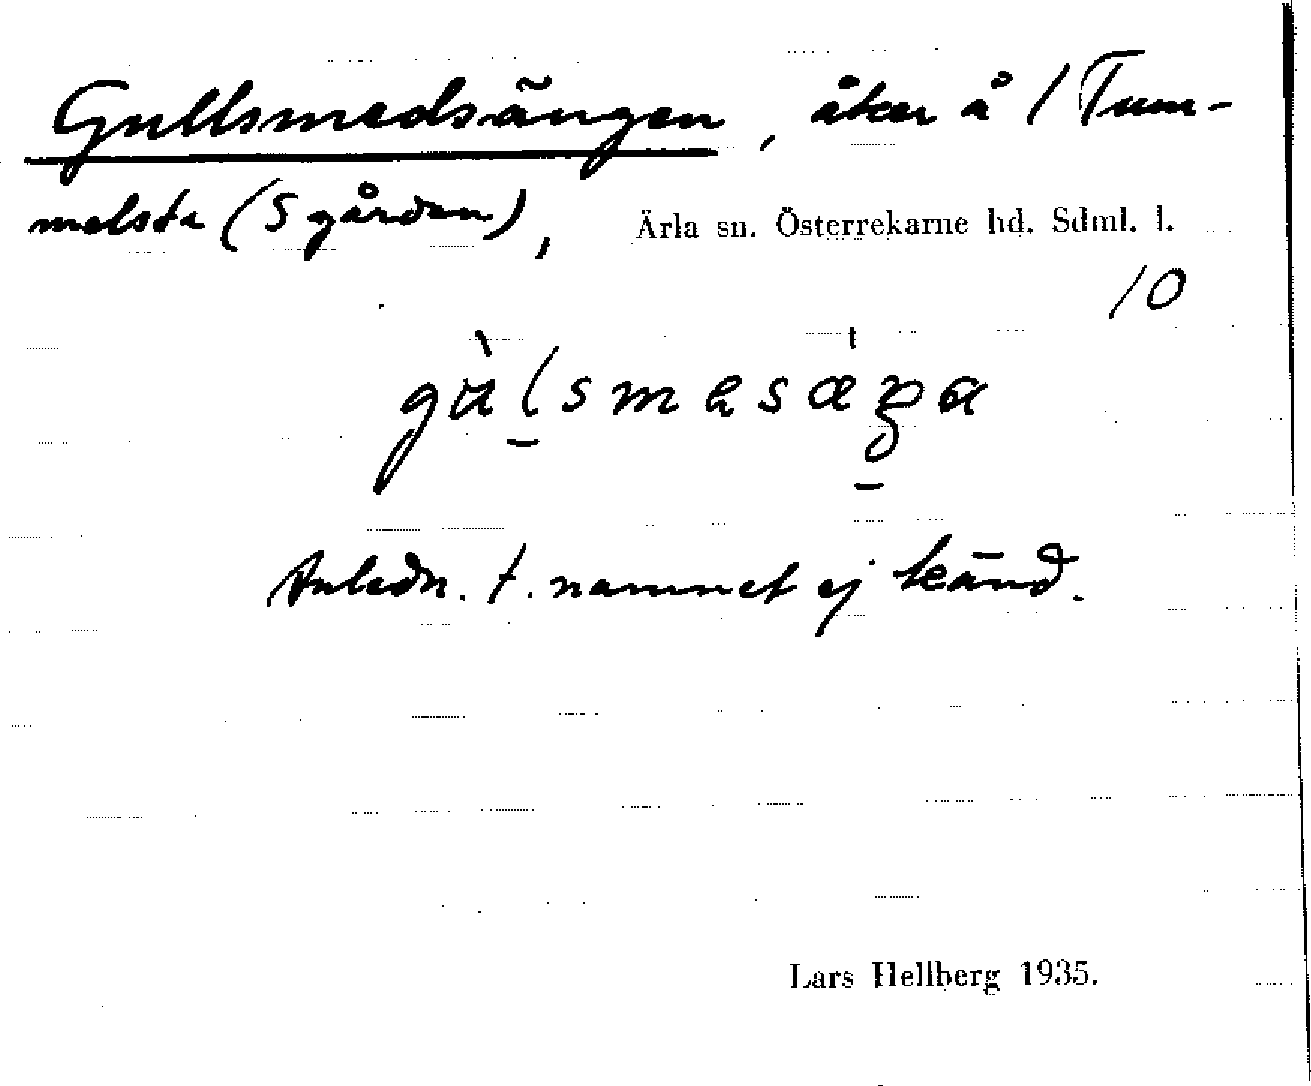 Gullsmedsängen, åker å / Tum-
melsta (S gården),
Ärla sn. Österrekarne hd. Sdml. l.
10
Anledn. t. namnet ej känd.
Lars Hellberg 1935.